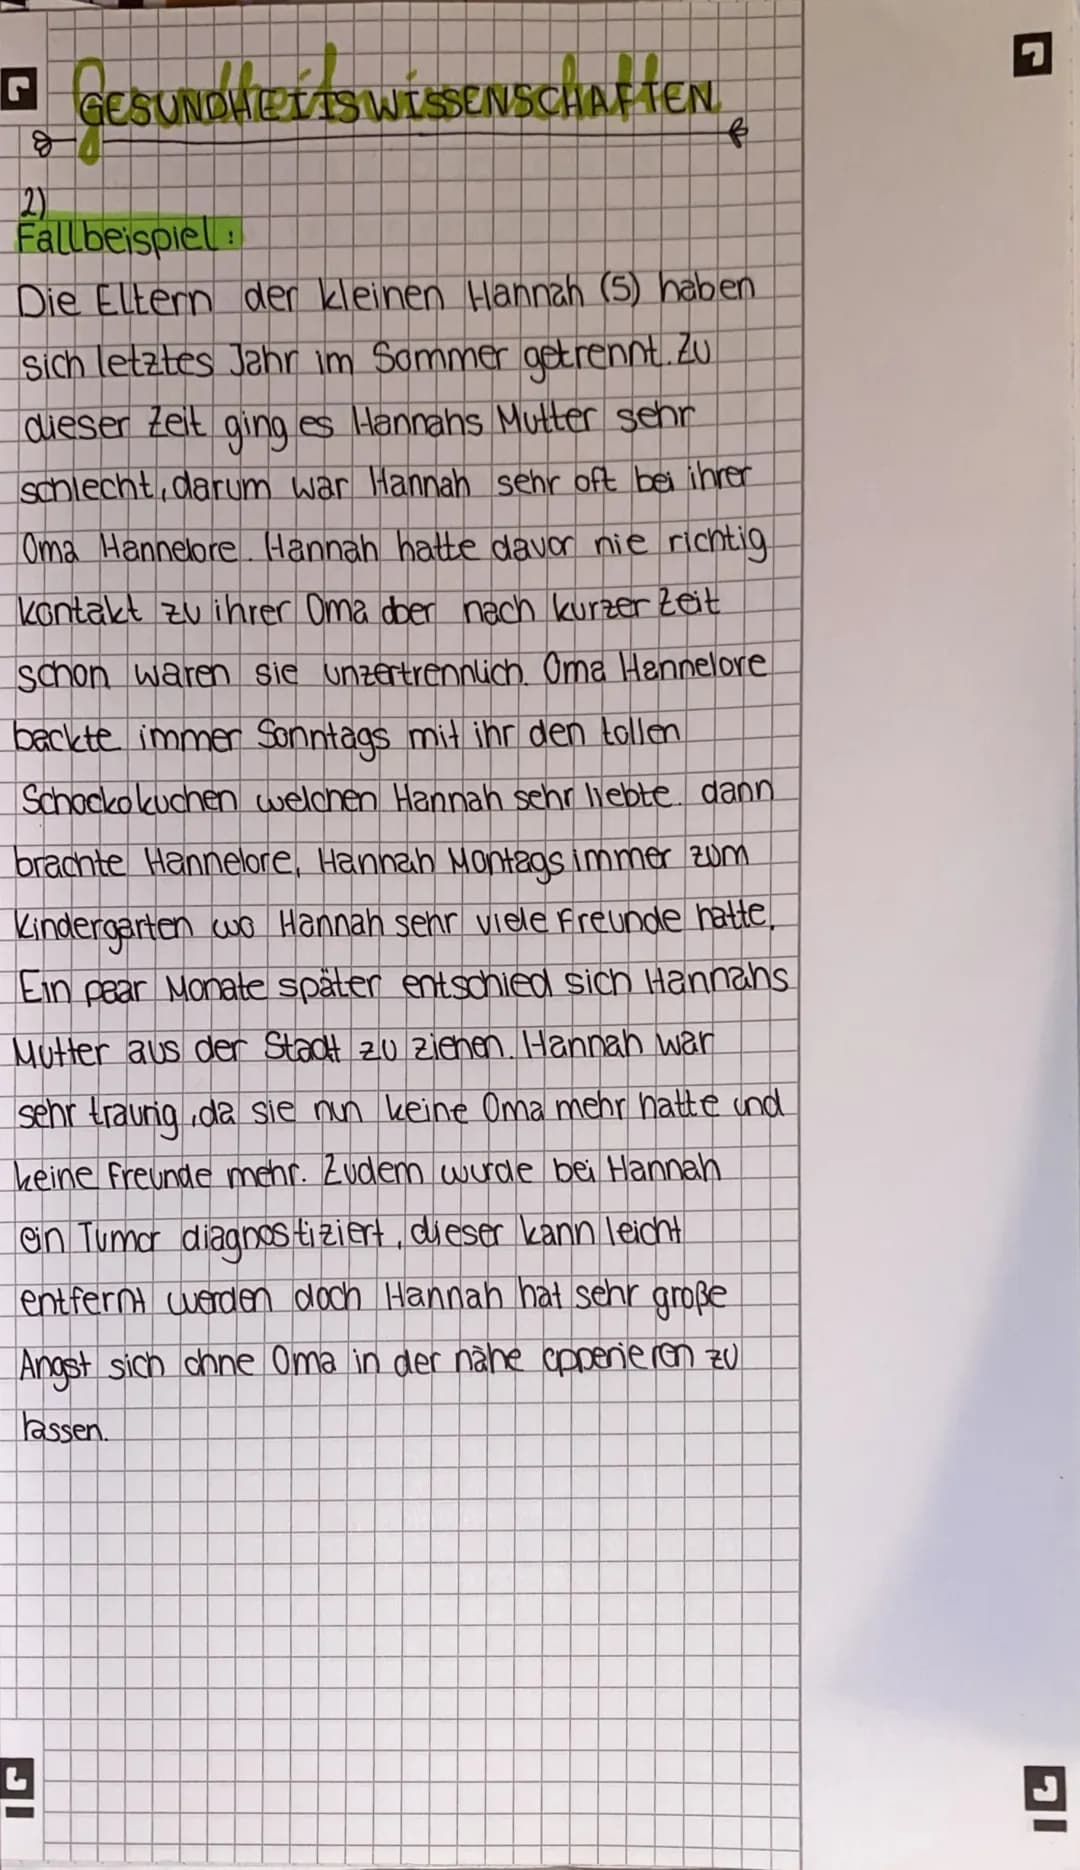 GESUNDHEITSWISSENSCHAFTEN
2)
Fallbeispiel:
Die Eltern der kleinen Hannah (5) haben
sich letztes Jahr im Sommer getrennt. Zu
dieser Zeit ging es Hannahs Mutter sehr
schlecht, darum war Hannah sehr oft bei ihrer
Oma Hannelore. Hannah hatte davor nie richtig
kontakt zu ihrer Oma aber nach kurzer Zeit
schon waren sie unzertrennlich. Oma Hannelore
backte immer Sonntags mit ihr den tollen
Schockokuchen welchen Hannah sehr liebte. dann
brachte Hannelore, Hannah Montags immer zum
Kindergarten wo Hannah sehr viele Freunde hatte.
Ein paar Monate später entschied sich Hannahs
Mutter aus der Stadt zu ziehen. Hannah war
sehr traurig, da sie nun keine Oma mehr hatte und
keine Freunde mehr. Zudem wurde bei Hannah
ein Tumor diagnostiziert, dieser kann leicht
entfernt werden doch Hannah hat sehr große
Angst sich ohne Oma in der nähe opperieren zu
lassen.